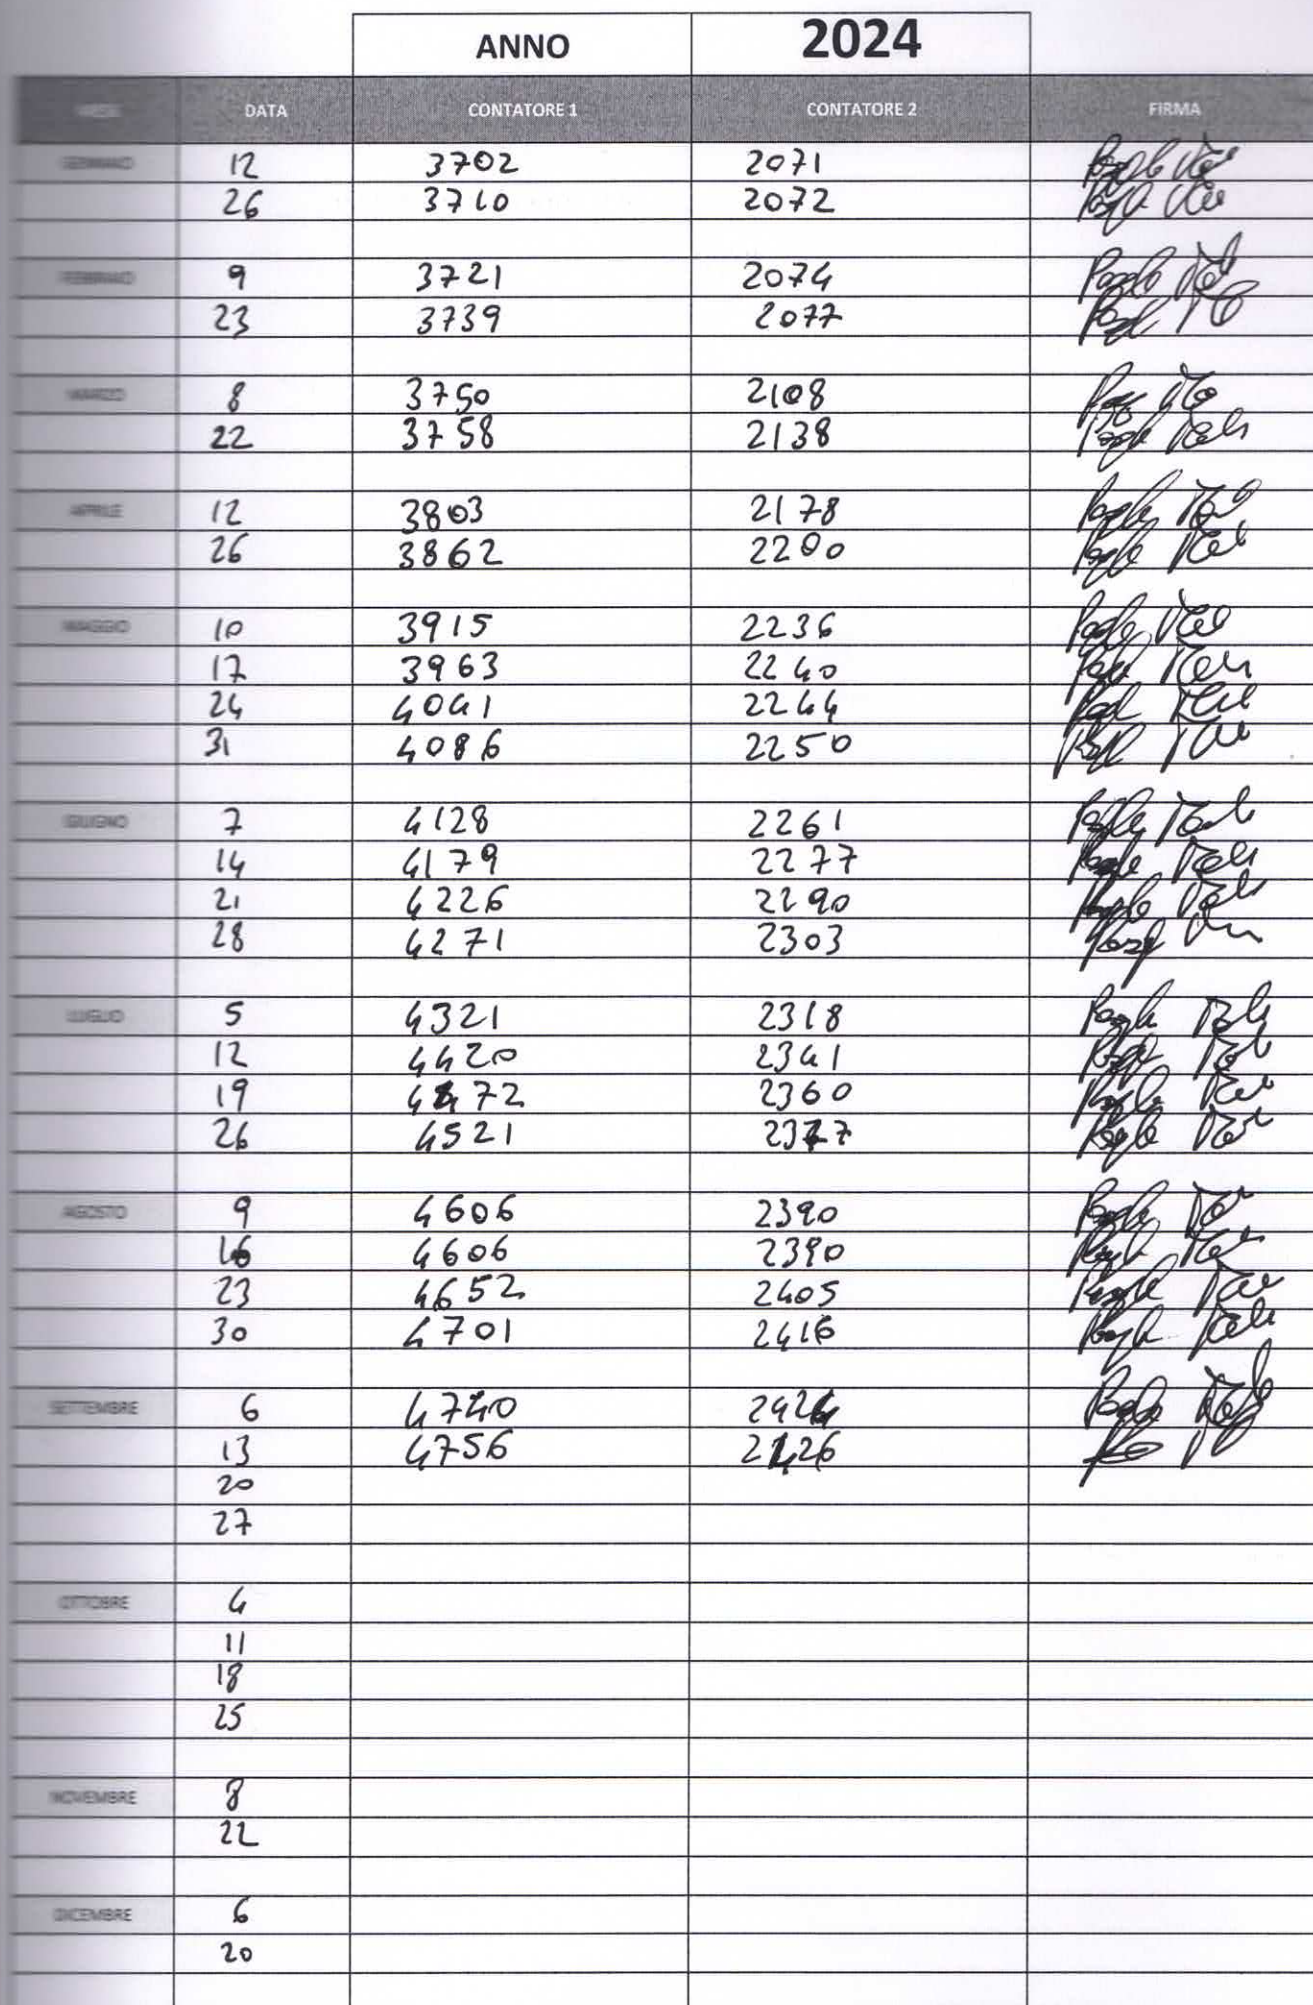 ANNO 2024
MESE DATA CONTATORE 1 CONTATORE 2 FIRMA
GENNAIO 12 3702 2071
26 3710 2072
FEBBRAIO 9 3721 2074
23 3739 2077
MARZO 8 3750 2108
22 3758 2138
APRILE 12 3803 2178
26 3862 2200
MAGGIO 10 3915 2236
17 3963 2240
24 4041 2244
31 4086 2250
GIUGNO 7 4128 2261
14 4179 2277
21 4226 2290
28 4271 2303
LUGLIO 5 4321 2318
12 4420 2341
19 4472 2360
26 4521 2377
AGOSTO 9 4606 2390
16 4606 2390
23 4652 2405
30 4701 2416
SETTEMBRE 6 4740 2424
13 4756 2426
20
27
OTTOBRE 4
11
18
25
NOVEMBRE 8
22
DICEMBRE 6
20